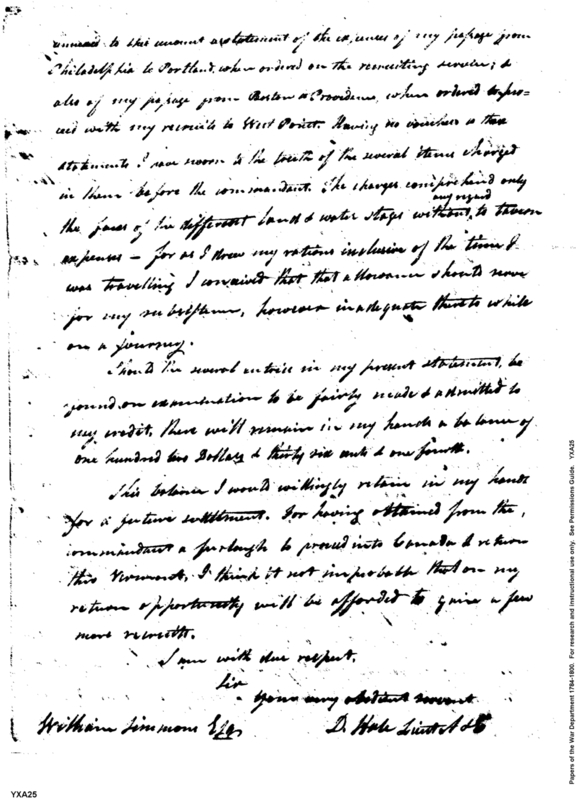 annexed to this account a statement of the expences of my passage from
Philadelphia to Portland, when ordered on the recruiting service; &
also of my passage from Boston to Providence, when ordered to pro-
ceed with my recruits to West Point. Having no vouchers to these
statements I have sworn to the truth of the several items charged
in them before the commandant. The charges comprehend only
any regard
the fares of the different land & water stages without, to tavern
expenses – for as I drew my rations inclusive of the time I
was travelling I conceived that that allowance should serve
for my subsistence, however inadequate thereto while
on a journey.
Should the several entries in my present statement, be
found on examination to be fairly made & admitted to
my credit, there will remain in my hands a balance of
one hundred two Dollars & thirty six cents & one fourth.
This balance I would willingly retain in my hands
for a future settlement. For having obtained from the,
commandant a furlough to proceed into Canada & return
this Vermont, I think it not improbable that on my
return opportunity will be afforded to gain a few
more recruits.
I am with due respect,
Sir
your very obedient servant
William Simmons Esqr D. Hale Lieut A &
YXA25
Papers of the War Department 1784-1800. For research and instructional use only. See Permissions Guide. YXA25